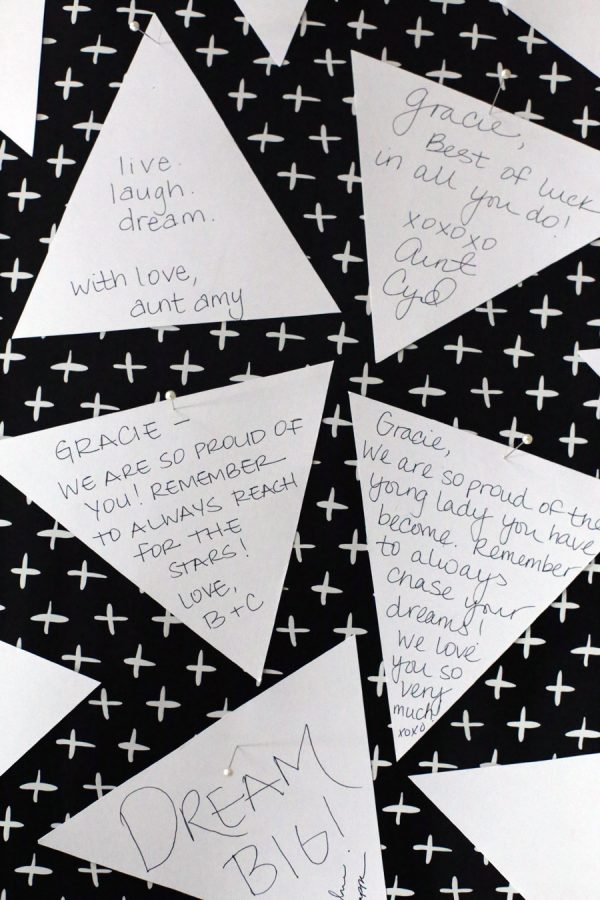 live.
laugh.
dream.
with love,
aunt amy
Gracie,
Best of luck
in all you do!
xoxoxo
Aunt
Cyd
GRACIE –
WE ARE SO PROUD OF
YOU! REMEMBER
TO ALWAYS REACH
FOR THE
STARS!
LOVE,
B + C
Gracie,
We are so proud of the
young lady you have
become. Remember
to always
chase your
dreams!
We love
you so
very
much
xoxo
DREAM
BIG!